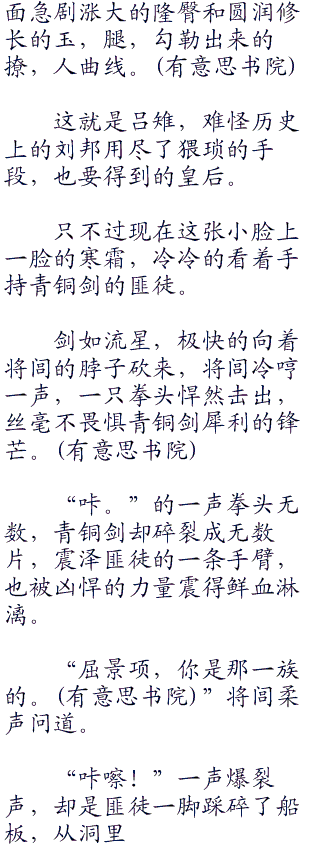 面急剧涨大的隆臀和圆润修
长的玉，腿，勾勒出来的
撩，人曲线。(有意思书院)
这就是吕雉，难怪历史
上的刘邦用尽了猥琐的手
段，也要得到的皇后。
只不过现在这张小脸上
一脸的寒霜，冷冷的看着手
持青铜剑的匪徒。
剑如流星，极快的向着
将闾的脖子砍来，将闾冷哼
一声，一只拳头悍然击出，
丝毫不畏惧青铜剑犀利的锋
芒。(有意思书院)
“咔。”的一声拳头无
数，青铜剑却碎裂成无数
片，震泽匪徒的一条手臂，
也被凶悍的力量震得鲜血淋
漓。
“屈景项，你是那一族
的。(有意思书院)”将闾柔
声问道。
“咔嚓！”一声爆裂
声，却是匪徒一脚踩碎了船
板，从洞里